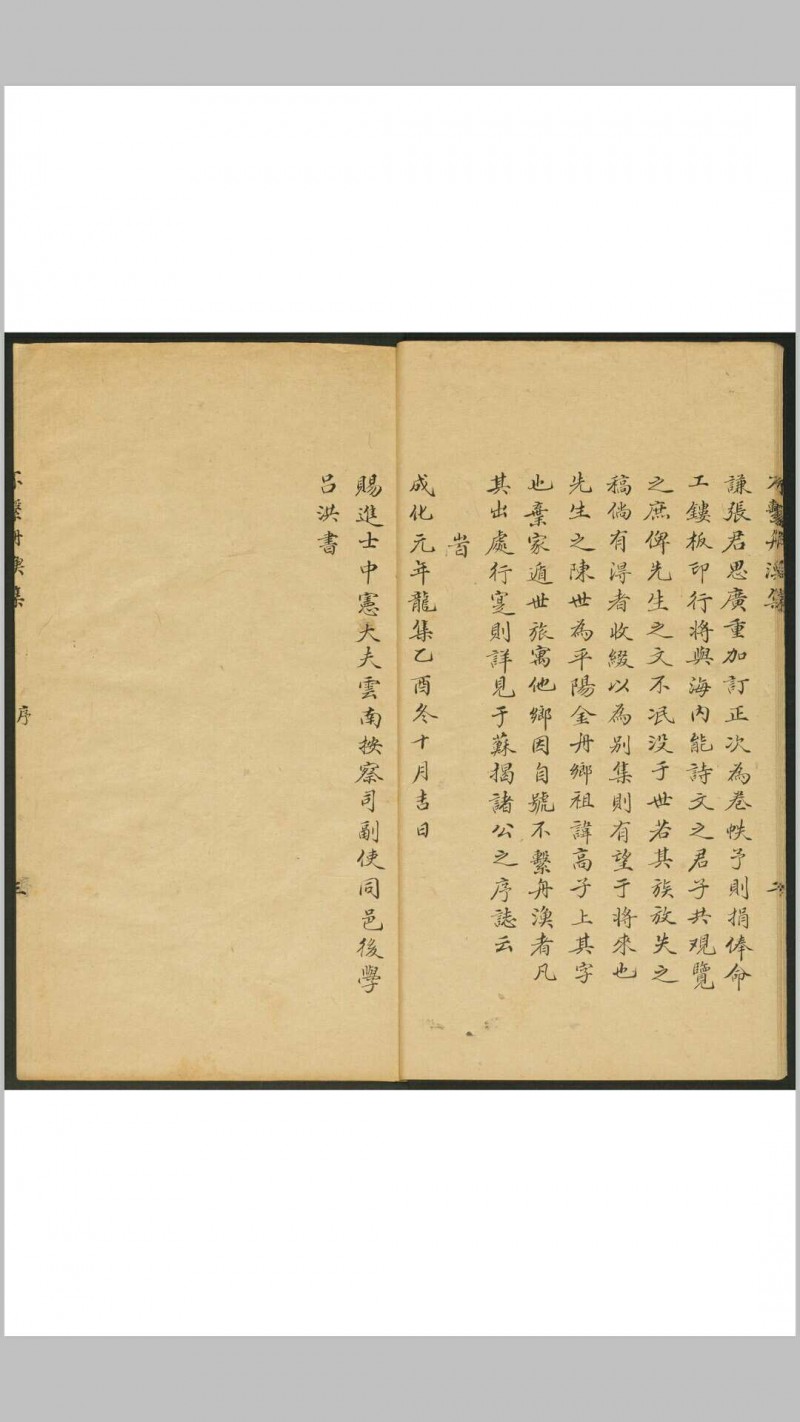 不繫舟漁集
二
謙張君思廣重加訂正次為卷帙予則捐俸命
工鏤板印行將與海内能詩文之君子共观覽
之庶俾先生之文不泯没于世若其族放失之
稿倘有淂者收綴以為别集則有望于將來也
先生之陳世為平陽金舟鄉祖諱高子上其字
也棄家遁世旅寓他鄉因自號不繫舟漁者凡
其出處行寔則詳見于蘇揭諸公之序誌云
旹
成化元年龍集乙酉冬十月吉日
賜進士中憲大夫雲南按察司副使同邑後學
吕洪書
不繫舟漁集
序
三